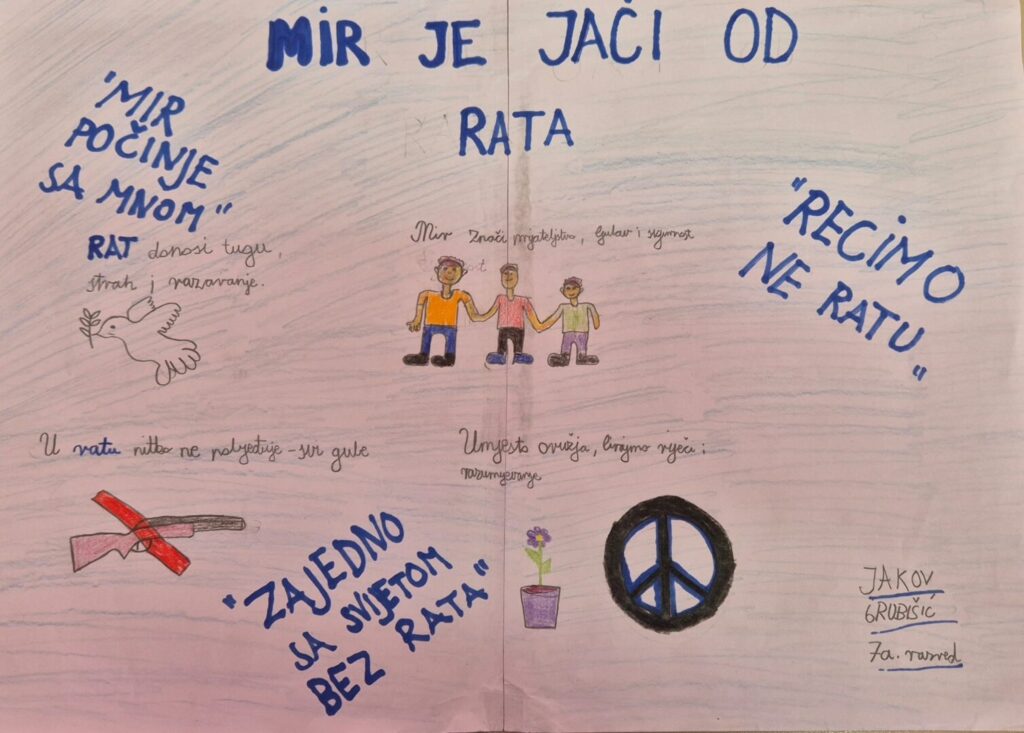 MIR JE JAČI OD
RATA
"MIR
POČINJE
SA MNOM"
RAT donosi tugu,
strah i razaranje.
Mir znači prijateljstvo, ljubav i sigurnost
"RECIMO
NE RATU"
U ratu nitko ne pobjeđuje - svi gube
Umjesto oružja, birajmo riječi i
razumijevanje
"ZAJEDNO
SA SVIJETOM
BEZ RATA"
JAKOV
GRUBIŠIĆ
7a. razred